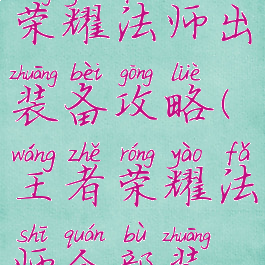 荣耀法师出
zhuāng bèi gōng lüè
装备攻略(
wáng zhě róng yào fǎ
王者荣耀法
shī quán bù zhuāng
师全部装